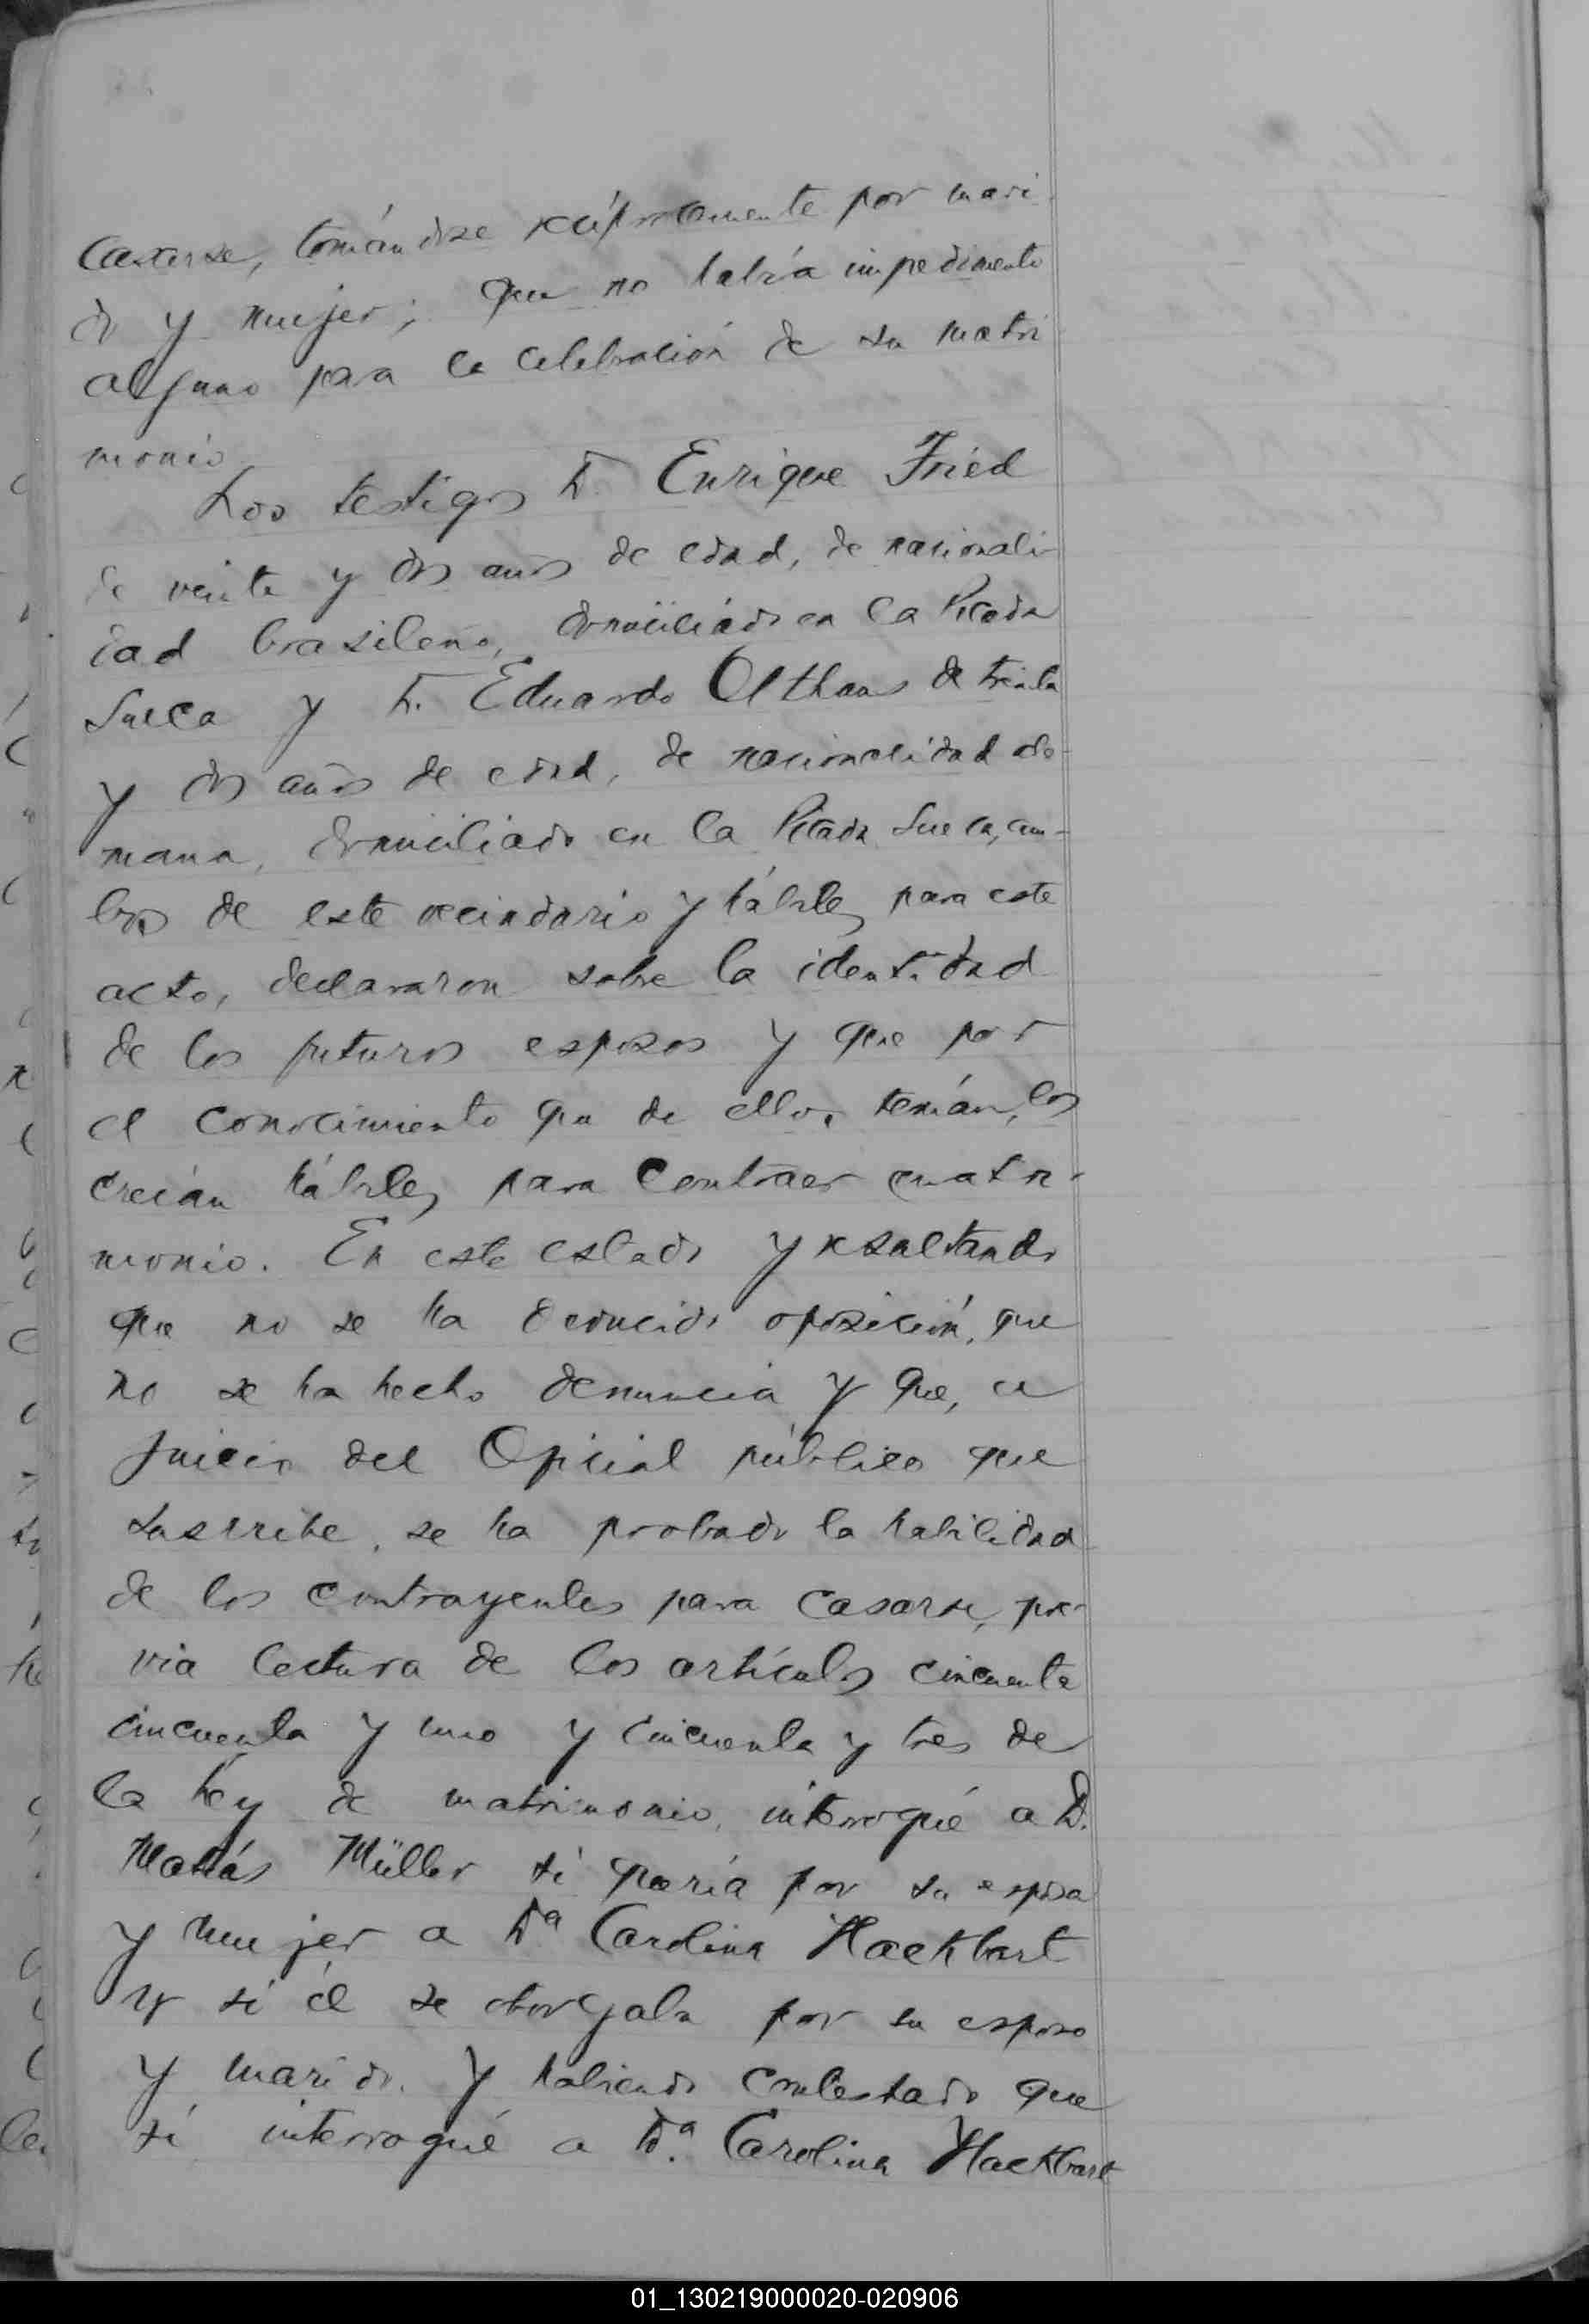 Casarse, tomándose recíprocamente por mari
do y mujer; que no había impedimento
alguno para la celebración de su matri
monio
Los testigos D. Enrique Fried
de veinte y dos años de edad, de nacionali-
dad brasileña, domiciliado en la Picada
Sueca y D. Eduardo Olthaus de treinta
y dos años de edad, de nacionalidad ale-
mana, domiciliado en la Picada Sueca, am-
bos de este vecindario y hábiles para este
acto, declararon sobre la identidad
de los futuros esposos y que por
el conocimiento que de ellos tenían, los
creían hábiles para contraer matri-
monio. En este estado y resultando
que no se ha deducido oposición, que
no se ha hecho denuncia y que, a
juicio del Oficial público que
suscribe, se ha probado la habilidad
de los contrayentes para casarse, pre-
via lectura de los artículos cincuenta
cincuenta y uno y cincuenta y tres de
la ley de matrimonio, interrogué a D.
Matías Müller si quería por su esposa
y mujer a Dª Carolina Hackbart
y si él se otorgaba por su esposo
y marido. Y habiendo contestado que
sí interrogué a D.ª Carolina Hackbart
01_130219000020-020906